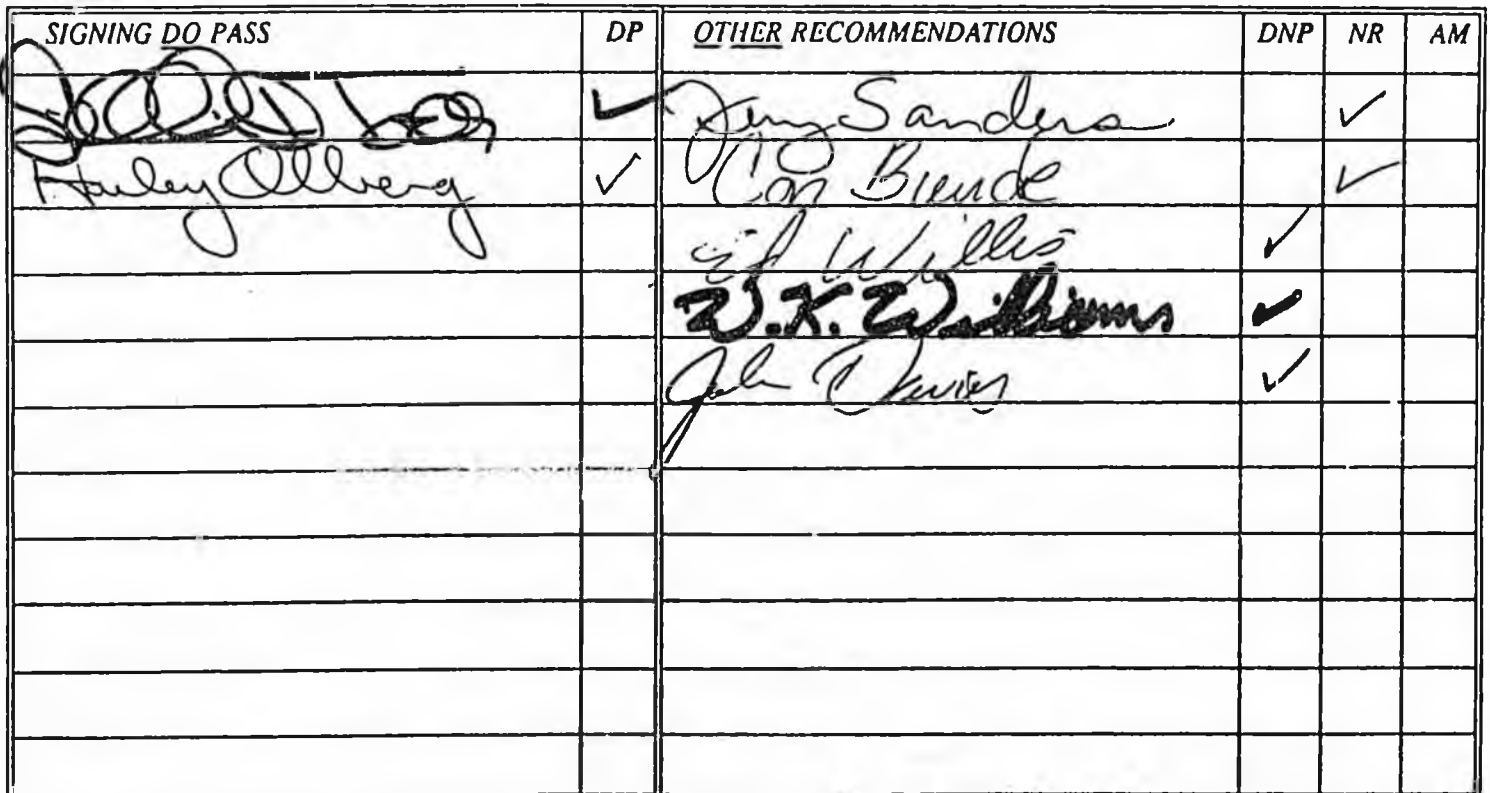 SIGNING DO PASS DP OTHER RECOMMENDATIONS DNP NR AM
✓ Jerry Sanders ✓
Harley Olberg ✓ Con Bunde ✓
Ed Willis ✓
W.K. Williams ✓
John Davies ✓